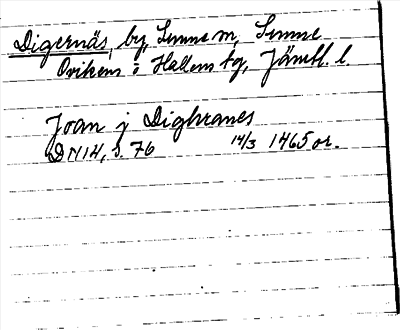 Digernäs, by, Sunne sn, Sunne
Ovikens o Hallens tg, Jämtl. l.
Joan j Dighranes
DN14, s. 76 14/3 1465 or.